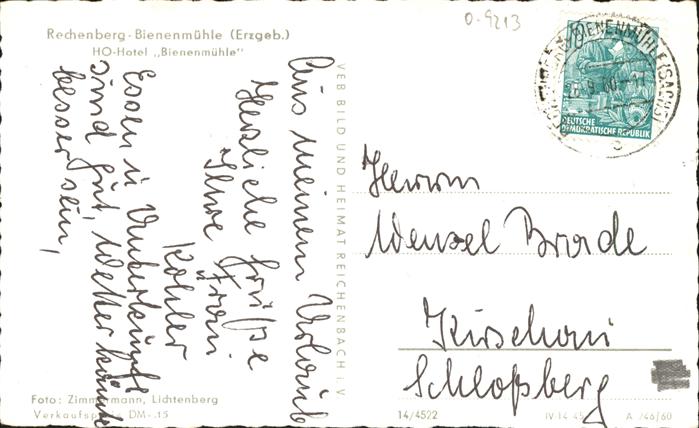 Rechenberg-Bienenmühle (Erzgeb.)
HO-Hotel „Bienenmühle"
O-9213
Aus meinem Urlaub
Herzliche Grüße
Ihre Frau
Köhler
Essen u Unterkünfte
sind gut, Wetter könnte
besser sein,
VEB BILD UND HEIMAT REICHENBACH i. V
BIENENMÜHLE (SACHS)
9.60-11
DEUTSCHE
DEMOKRATISCHE REPUBLIK
c
Herrn
Wenzel Brade
Kirschau
Schloßberg
Foto: Zimmermann, Lichtenberg
Verkaufspreis DM -.15
14/4522
IV-14-45
A 746/60